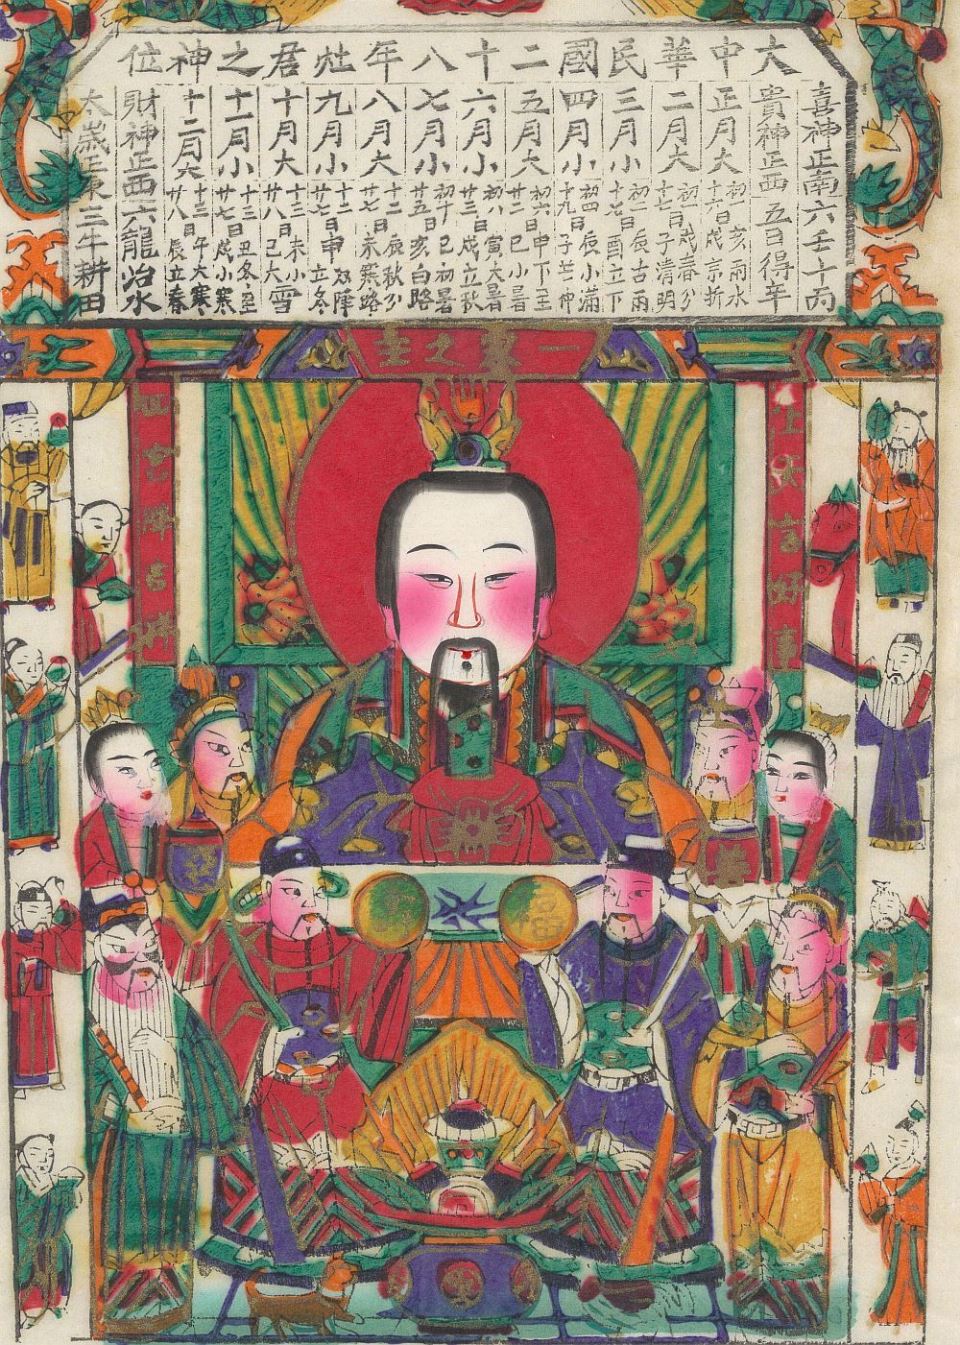 大中華民國二十八年灶君之神位
喜神正南六壬十丙
貴神正西五日得辛
正月大 初一亥雨水 十六日戌京折
二月大 初一戌春分 十七日子清明
三月小 初一辰古雨 十七日酉立下
四月小 初四辰小滿 十九日子芒中
五月大 初六甲下至 廿二日巳小暑
六月小 初八寅大暑 廿三日戌立秋
七月小 初十巳初暑 廿五日亥白路
八月大 十二辰秋分 廿七日未寒路
九月小 十二 双降 廿七日申立冬
十月大 十三未小 廿八日己大雪
十一月小 十三丑冬至 廿七日戌小寒
十二月大 十三午大寒 廿八日辰立春
財神正西六龍治水
太崴正東三牛耕田
一家之主
上天言好事
回宮降吉祥
福